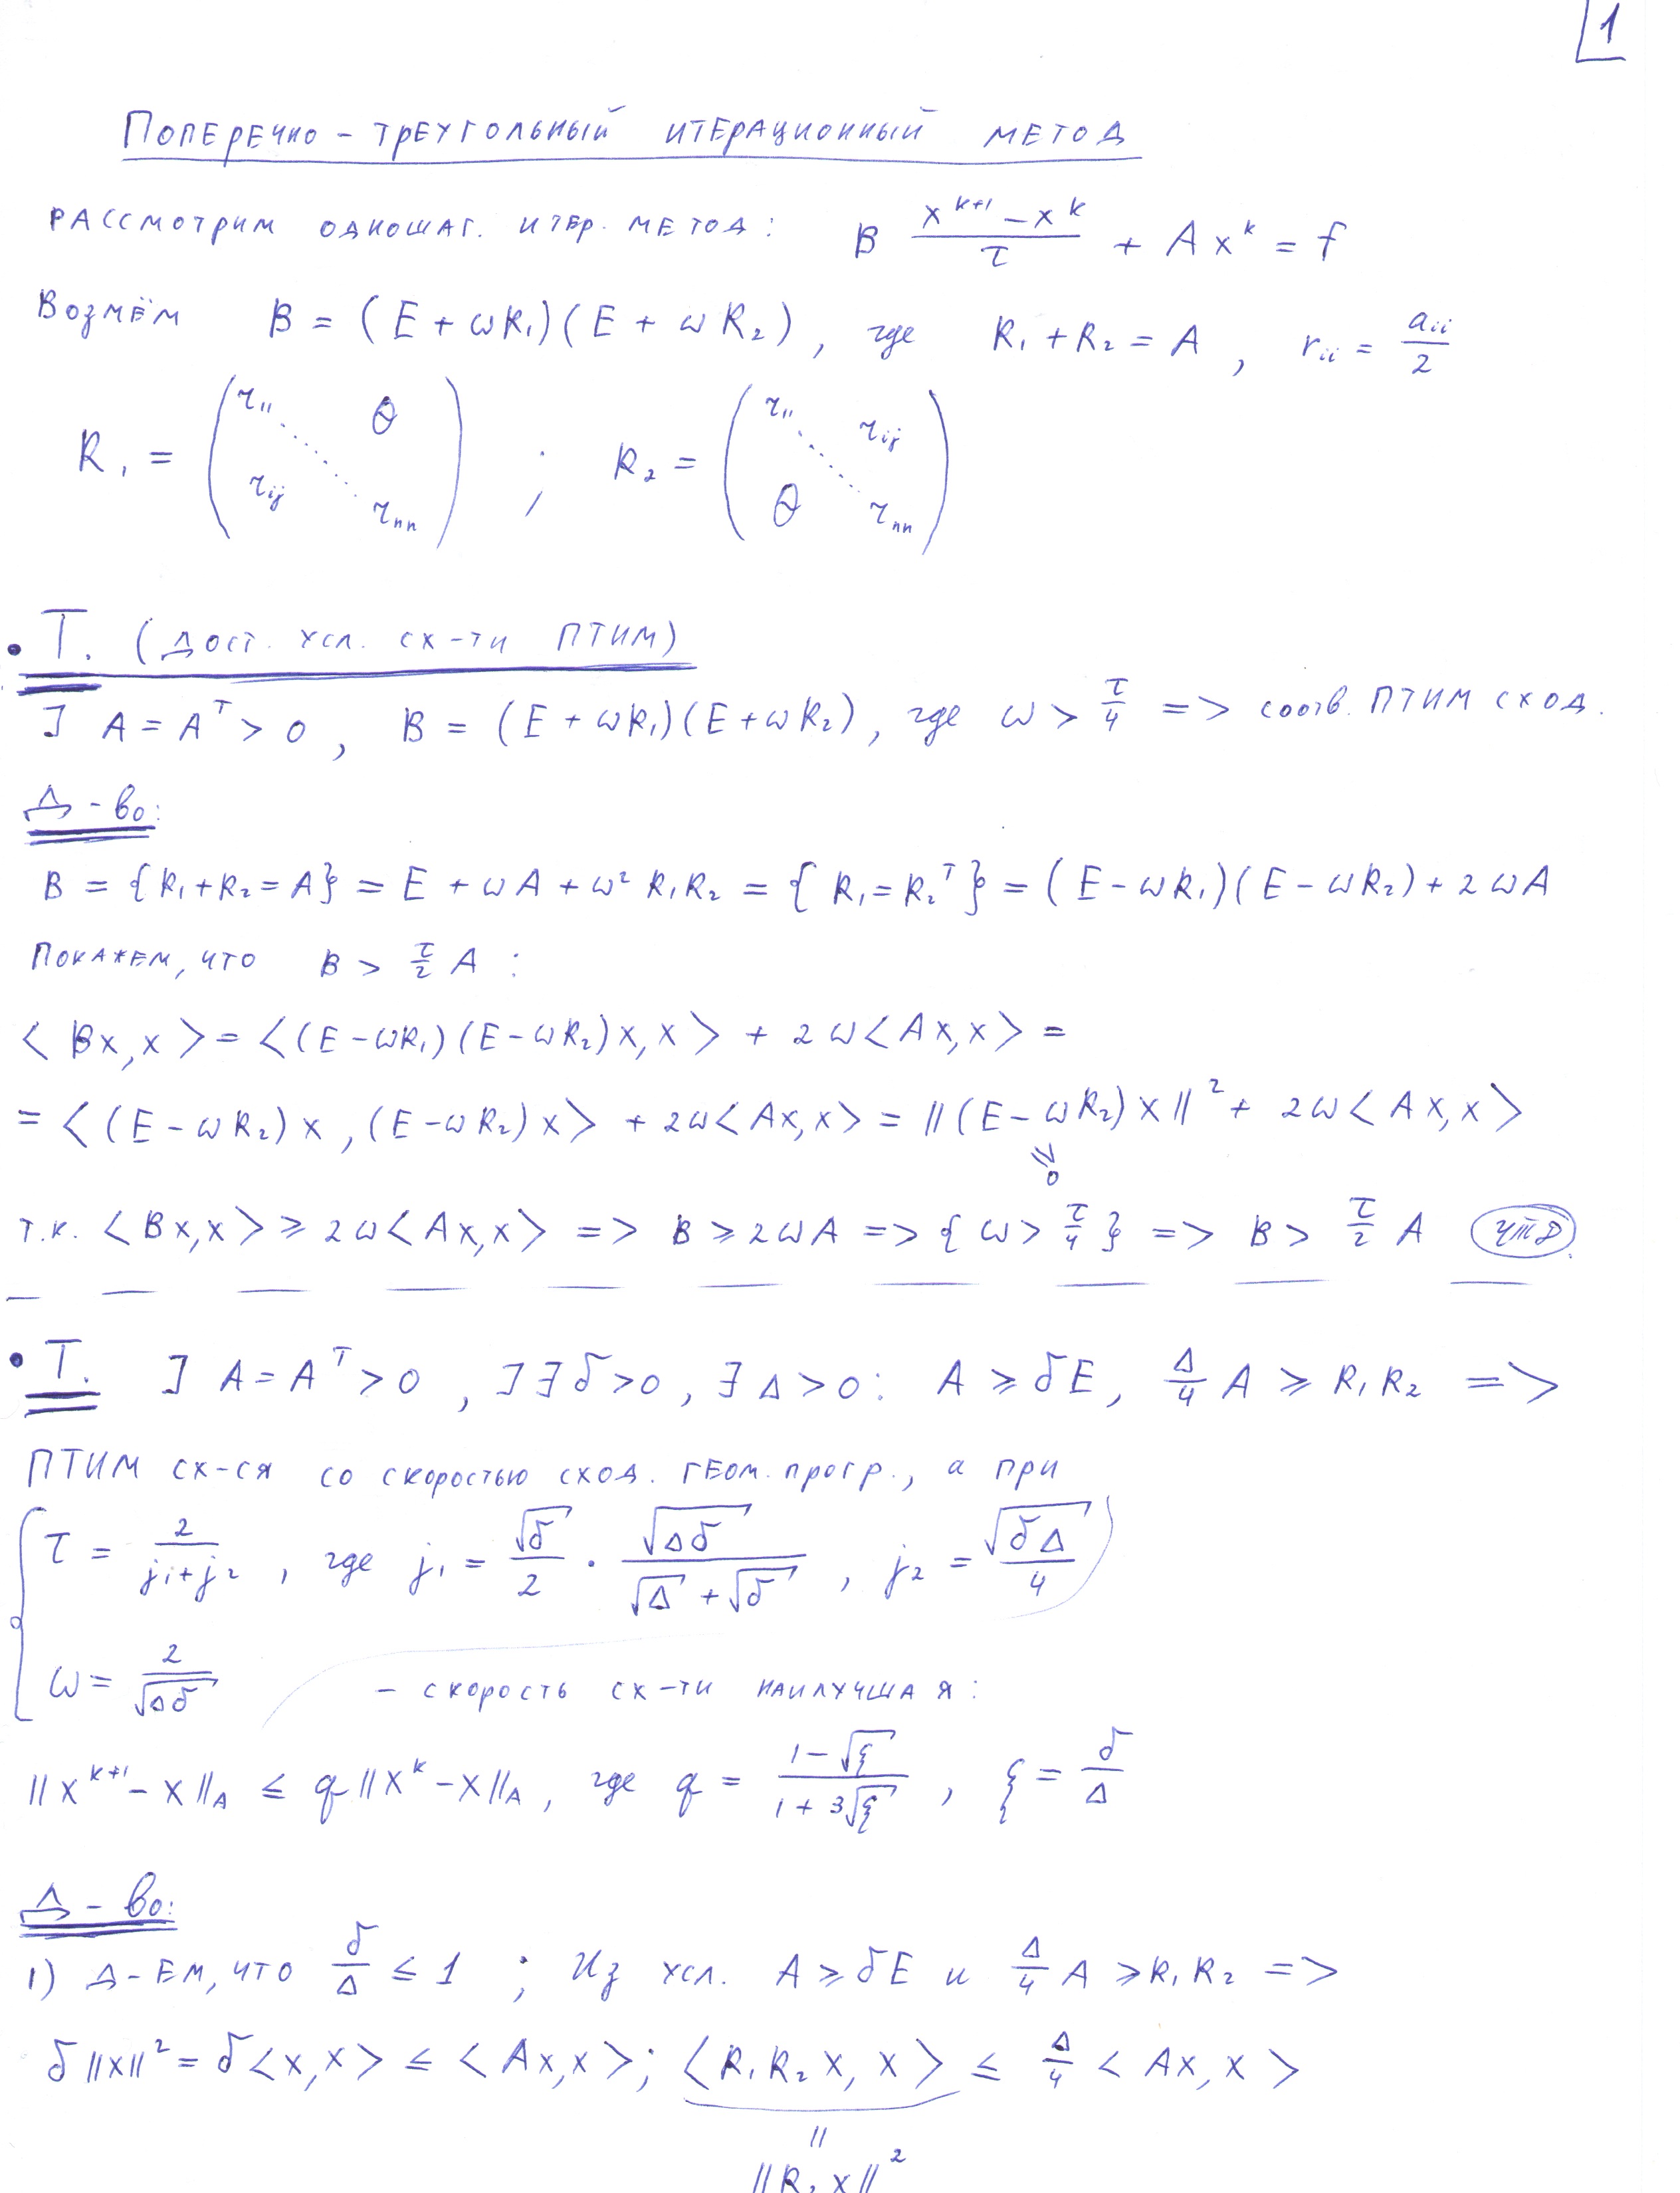 1
Поперечно-треугольный итерационный метод
Рассмотрим одношаг. итер. метод: B (x^{k+1} - x^k)/τ + Ax^k = f
Возмём B = (E + ωR₁)(E + ωR₂), где R₁ + R₂ = A, r_{ii} = a_{ii}/2
R₁ = ( r₁₁ θ r_{ij} r_{nn} ) ; R₂ = ( r₁₁ r_{ij} θ r_{nn} )
• Т. (дост. усл. сх-ти ПТИМ)
] A = A^T > 0, B = (E + ωR₁)(E + ωR₂), где ω > τ/4 => соотв. ПТИМ сход.
Д-во:
B = {R₁+R₂ = A} = E + ωA + ω² R₁R₂ = {R₁ = R₂^T} = (E - ωR₁)(E - ωR₂) + 2ωA
Покажем, что B > τ/2 A :
<Bx,x> = <(E - ωR₁)(E - ωR₂)x, x> + 2ω<Ax,x> =
= <(E - ωR₂)x, (E - ωR₂)x> + 2ω<Ax,x> = ||(E - ωR₂)x||² + 2ω<Ax,x>
≥ 0
т.к. <Bx,x> ≥ 2ω<Ax,x> => B ≥ 2ωA => {ω > τ/4} => B > τ/2 A чтд.
• Т. ] A = A^T > 0, ]∃ δ>0, ∃ Δ>0: A ≥ δE, Δ/4 A ≥ R₁R₂ =>
ПТИМ сх-ся со скоростью сход. геом. прогр., а при
τ = 2/(j₁+j₂), где j₁ = √δ/2 · √(Δδ)/(√Δ + √δ), j₂ = √(δΔ)/4
ω = 2/√(Δδ) - скорость сх-ти наилучшая:
||x^{k+1} - x||_A ≤ q||x^k - x||_A, где q = (1 - √ξ)/(1 + 3√ξ), ξ = δ/Δ
Д-во:
1) Д-ем, что δ/Δ ≤ 1 ; Из усл. A ≥ δE и Δ/4 A ≥ R₁R₂ =>
δ||x||² = δ<x,x> ≤ <Ax,x>; <R₁R₂x, x> ≤ Δ/4 <Ax,x>
||
||R₂x||²